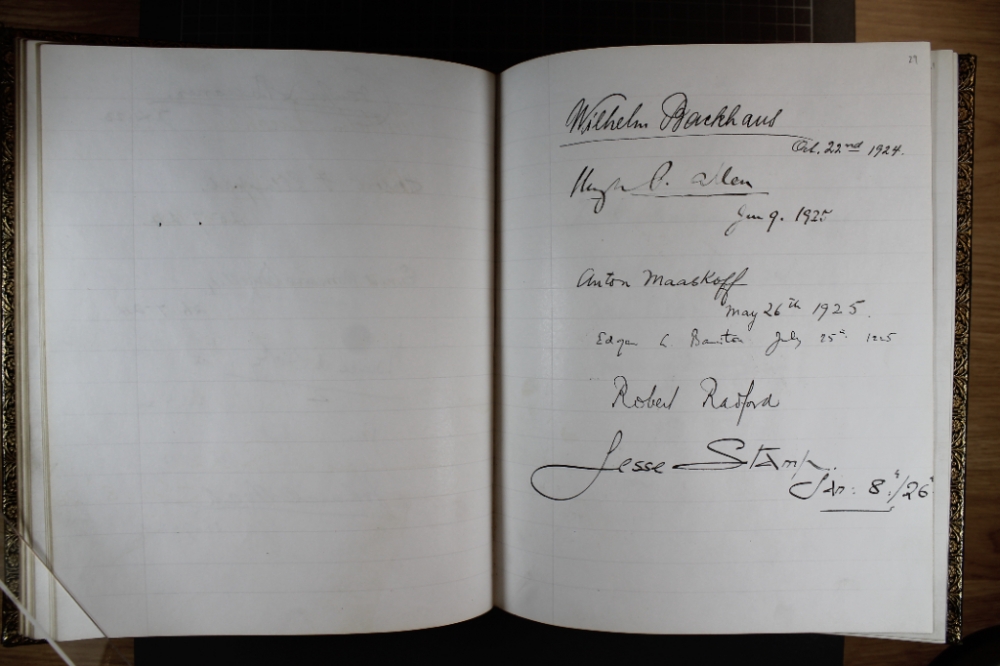 29
Wilhelm Backhaus
Oct. 22nd 1924.
Hugh P. Allen
Jun 9. 1925
Anton Maaskoff
May 26th 1925.
Edgar L Bainton July 25th 1925
Robert Radford
Jesse Stamp.
Jan: 8th/26